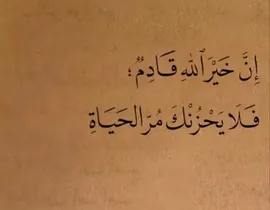 إِنَّ خَيْرَ ٱللهِ قَادِمٌ؛
فَلَا يَحْزُنْكَ مُرّ الحَيَاةِ